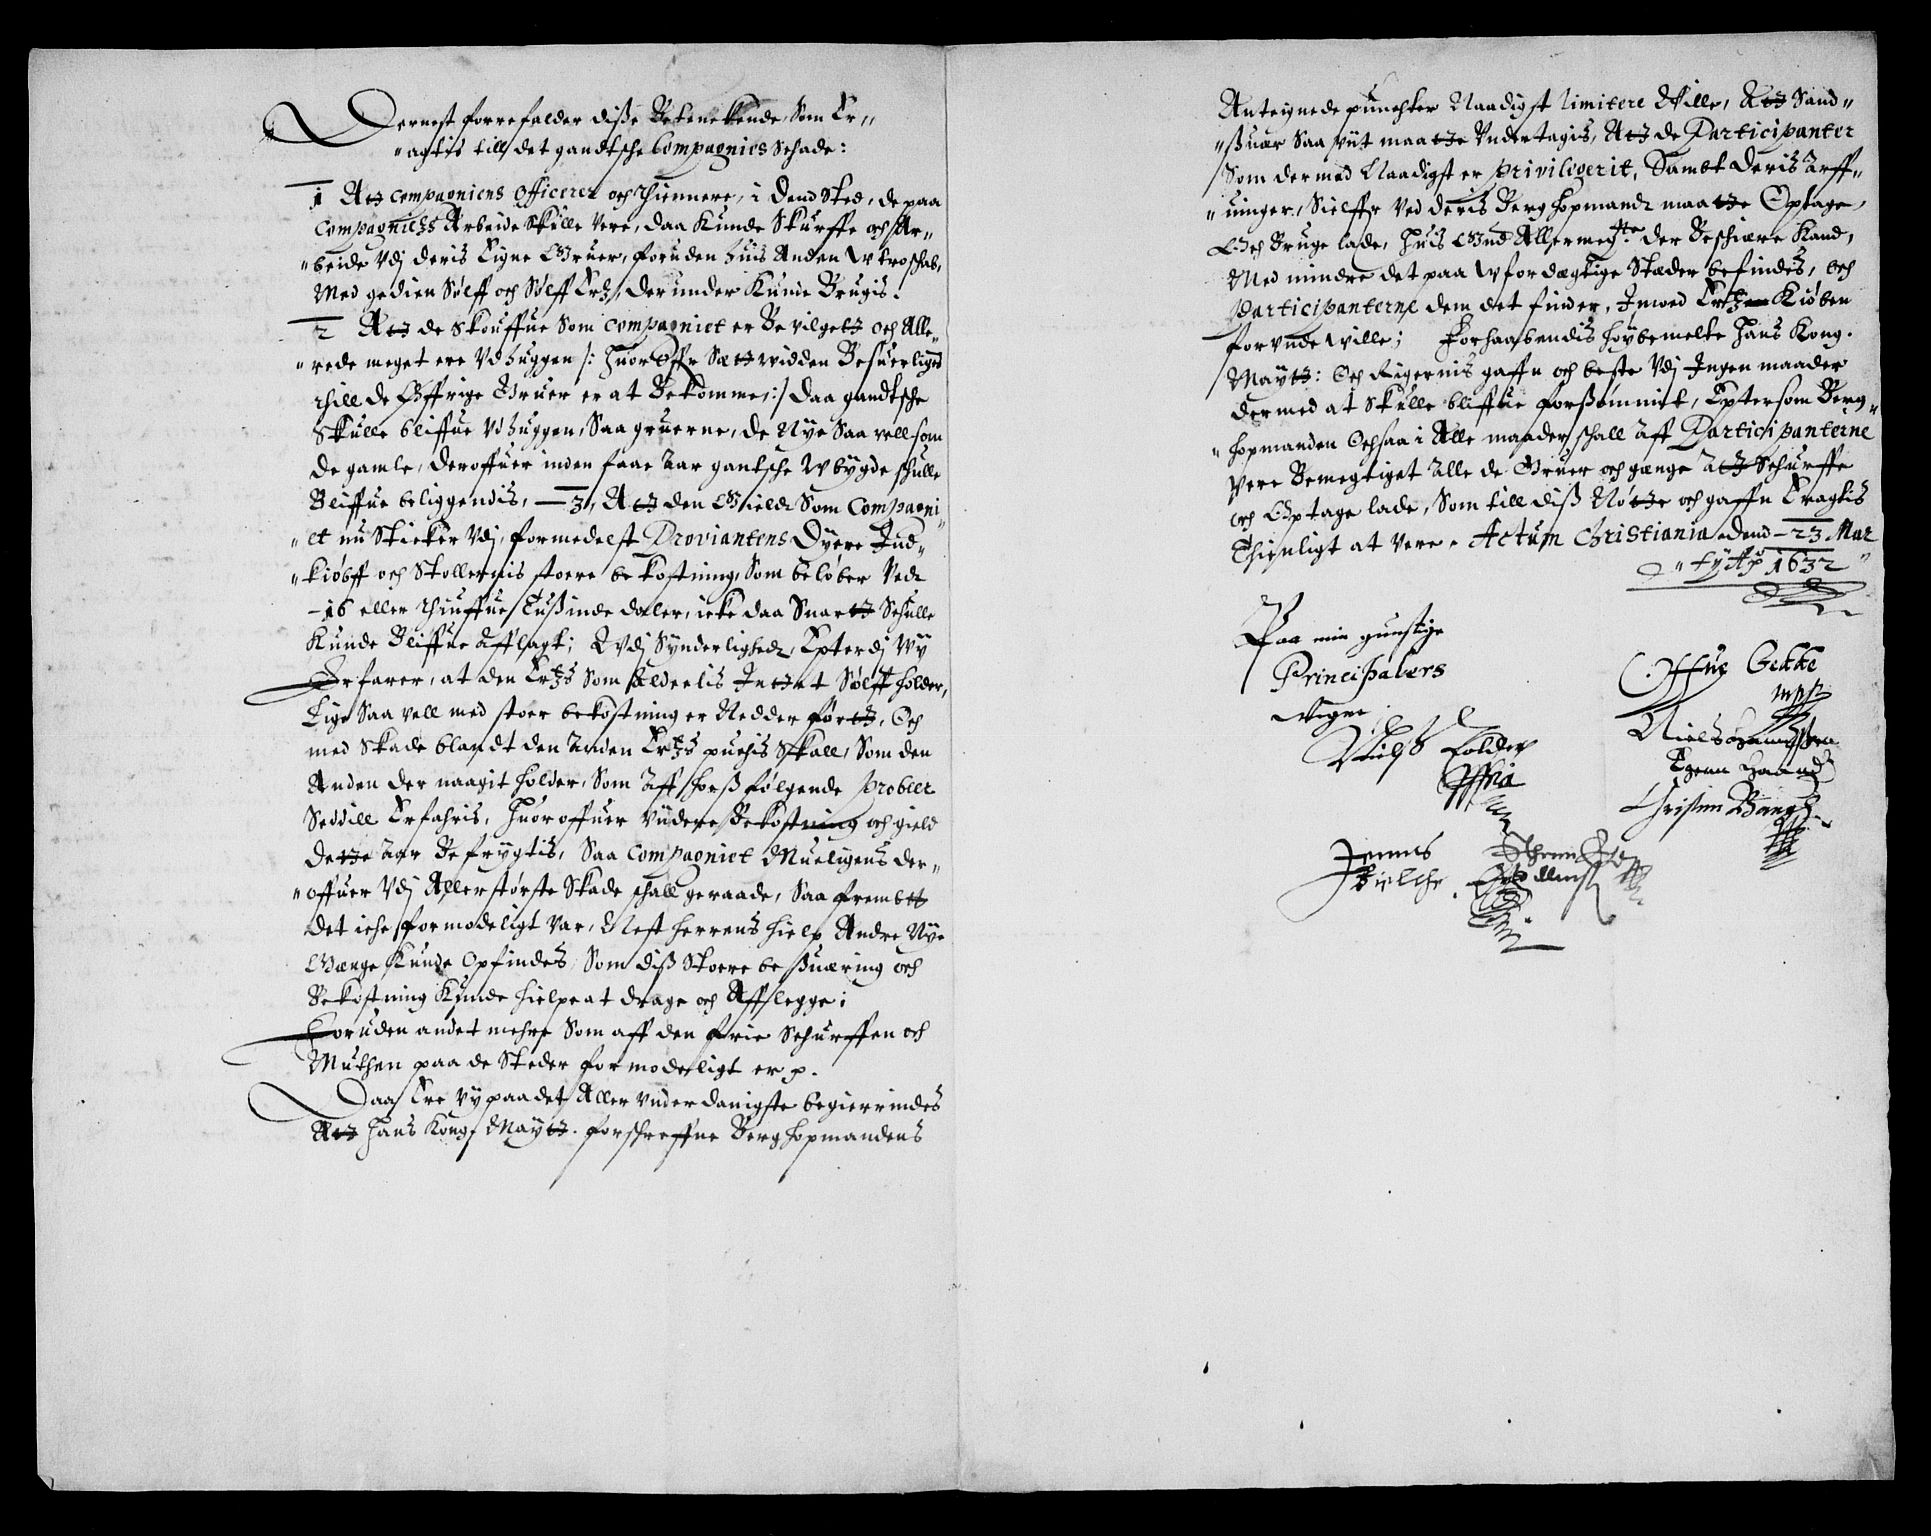 Dernest forrefalder disse Betenckende, Som Er,,
"agtis till det gandtsche Compagnies Schade:
1 Att Compagniens Officerer och thiennere, i dend Sted, de paa
Compagnietzs Arbeide Skulle vere, daa Kunde Skurffe och Ar,,
"beide Vdj deris Eigne Gruer, foruden huis Anden Vtroschab,
Med gedien Sølff och Sølff Ertz, der under Kunde Brugis.
2 Att de Skouffue Som Compagniet er Bevilgett och Alle,,
"rede meget ere Vdhuggen /: huor offr Sætwidden Besuerligst
thill de Øffrige Gruer er at Bekomme:/ daa gandtsche
Skulle bliffue Vdhuggen, Saa gruerne, de Nye Saa vell som
de gamle, deroffuer inden faae Aar gantsche Vbygde schulle
Bliffue beliggendis, 3, Att den Gield Som Compagni,,
"et nu Sticker Vdj, formedelst Proviantens Dyere Ind,,
"kiøbff och Stollernis stoere bekostning, Som beløber Ved
16 eller thiuffue Tusinde daler, icke daa Snart Schulle
Kunde Bliffue Afflagt; Vdj Synderlighed, Epterdj Wy
Erfarer, at den Ertzs Som aldeelis Intet Sølff holder,
Lige Saa vell med stoer bekostning er Nedder førtt, Och
med Skade blandt den Anden Ertzs puchis Skall, Som den
Anden der naagit holder, Som Aff hoess følgende Probeer
Seddill Erfahris, Huoroffuer Viidere Bekostning och gield
dette Aar Befrygtis, Saa Compagniet Mueligens der,,
"offuer Vdj Allerstørste Skade schall geraade, Saa frembt
det iche formodeligt var, Mest herrens hielp Andre Nye
Gænge Kunde Opfindes, Som diss Stoere besuæring och
Bekostning Kunde hielpe at drage och Afflegge;
Foruden andet mehre Som aff den frie Schurffen och
Muthen paa de Steder formodeligt er p.
Daa Ere vy paa det Aller vnderdanigste begierindes
Att Hans Kong: Maytt. forschreffne Berghopmandens
Anteignede puncter Naadigst limitere Wille, Att Sand,,
"suær Saa viit maatte Vndertagis, Att de Participanter
Som dermed Naadigst er priviligerit, Sambt deris Arff,,
"uinger, Sielffr ved deris Berghopmand maatte Optage,
Och Bruge lade, huis Gud Allermegste der Beschiære Kand,
Med mindre det paa Vfordægtige Stæder befindes, och
Participanterne dem det finder, Imod Ertz Kiøben
forvnde wille; Forhaabendis høybemelte Hans Kong.
Maytt: Och Rigernis gaffn och beste Vdj Ingen maader
dermed at Skulle bliffue forsømmit, Eptersom Berg,,
"hopmanden Ochsaa i Alle maader schall Aff Participanterne
Vere Bemegtiget Alle de Gruer och gænge Att Schurffe
och Optage lade, Som till diss Nøtte och gaffn Eragtis
Thienligt at Vere. Actum Christiania dend 23 Mar
"tij Ao 1632
Paa min gunstige
Principalers
Wegne
Niels Tolder
Offue Gedde
mpp
Niels Hanssen
Egenn Haand
Christen Bang
Jennus
Bielche